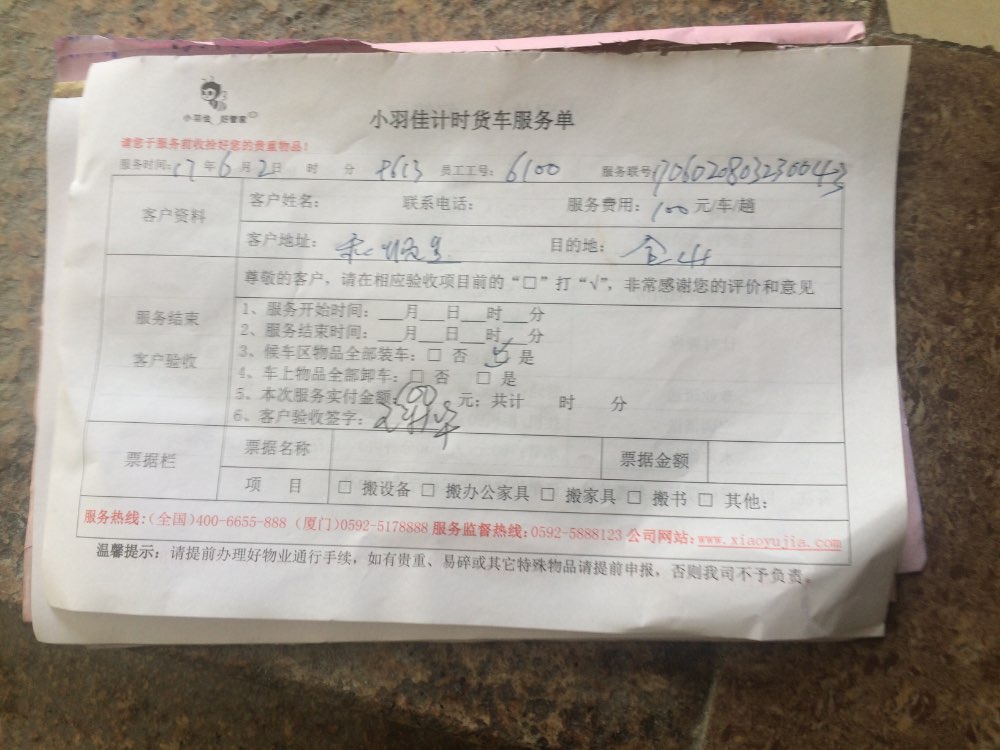 小羽佳 好管家
小羽佳计时货车服务单
请您于服务前收捡好您的贵重物品!
服务时间: 17 年 6 月 2 日 时 分 员工工号: 6100 服务联号 17060208032300443
客户资料
客户姓名: 联系电话: 服务费用: 100 元/车/趟
客户地址: 目的地:
尊敬的客户,请在相应验收项目前的“□”打“√”,非常感谢您的评价和意见
服务结束
客户验收
1、服务开始时间:___月___日___时___分
2、服务结束时间:___月___日___时___分
3、候车区物品全部装车: □ 否 □ 是
4、车上物品全部卸车: □ 否 □ 是
5、本次服务实付金额: 100 元; 共计 时 分
6、客户验收签字:
票据栏
票据名称 票据金额
项 目 □ 搬设备 □ 搬办公家具 □ 搬家具 □ 搬书 □ 其他:
服务热线:(全国)400-6655-888 (厦门)0592-5178888 服务监督热线: 0592-5888123 公司网站: www.xiaoyujia.com
温馨提示: 请提前办理好物业通行手续, 如有贵重、易碎或其它特殊物品请提前申报, 否则我司不予负责。